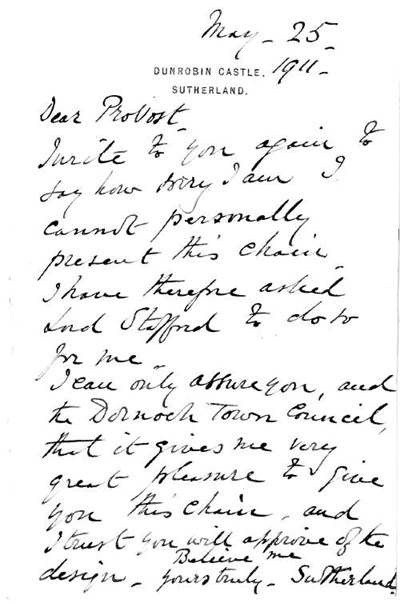 May - 25 -
1911 -
DUNROBIN CASTLE.
SUTHERLAND.
Dear Provost -
I write to you again to
say how sorry I am I
cannot personally
present this chair -
I have therefore asked
Lord Stafford to do so
for me -
I can only assure you, and
the Dornoch Town Council,
that it gives me very
great pleasure to give
you this Chair, and
I trust you will approve of the
design - Believe me
yours truly - Sutherland.